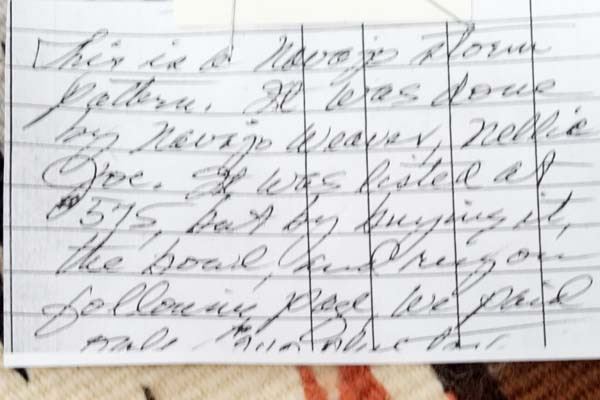 This is a Navajo storm
pattern. It was done
by Navajo weaver, Nellie
Joe. It was listed at
$575, but by buying it,
the bowl, and rug on
following page we paid
only